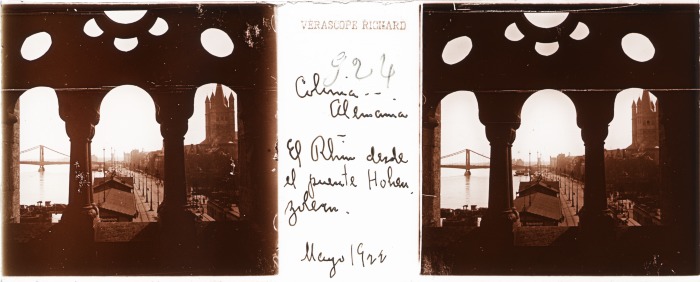 VERASCOPE RICHARD
924
Colonia --
Alemania
El Rhin desde
el puente Hohen
zolern.
Mayo 1922